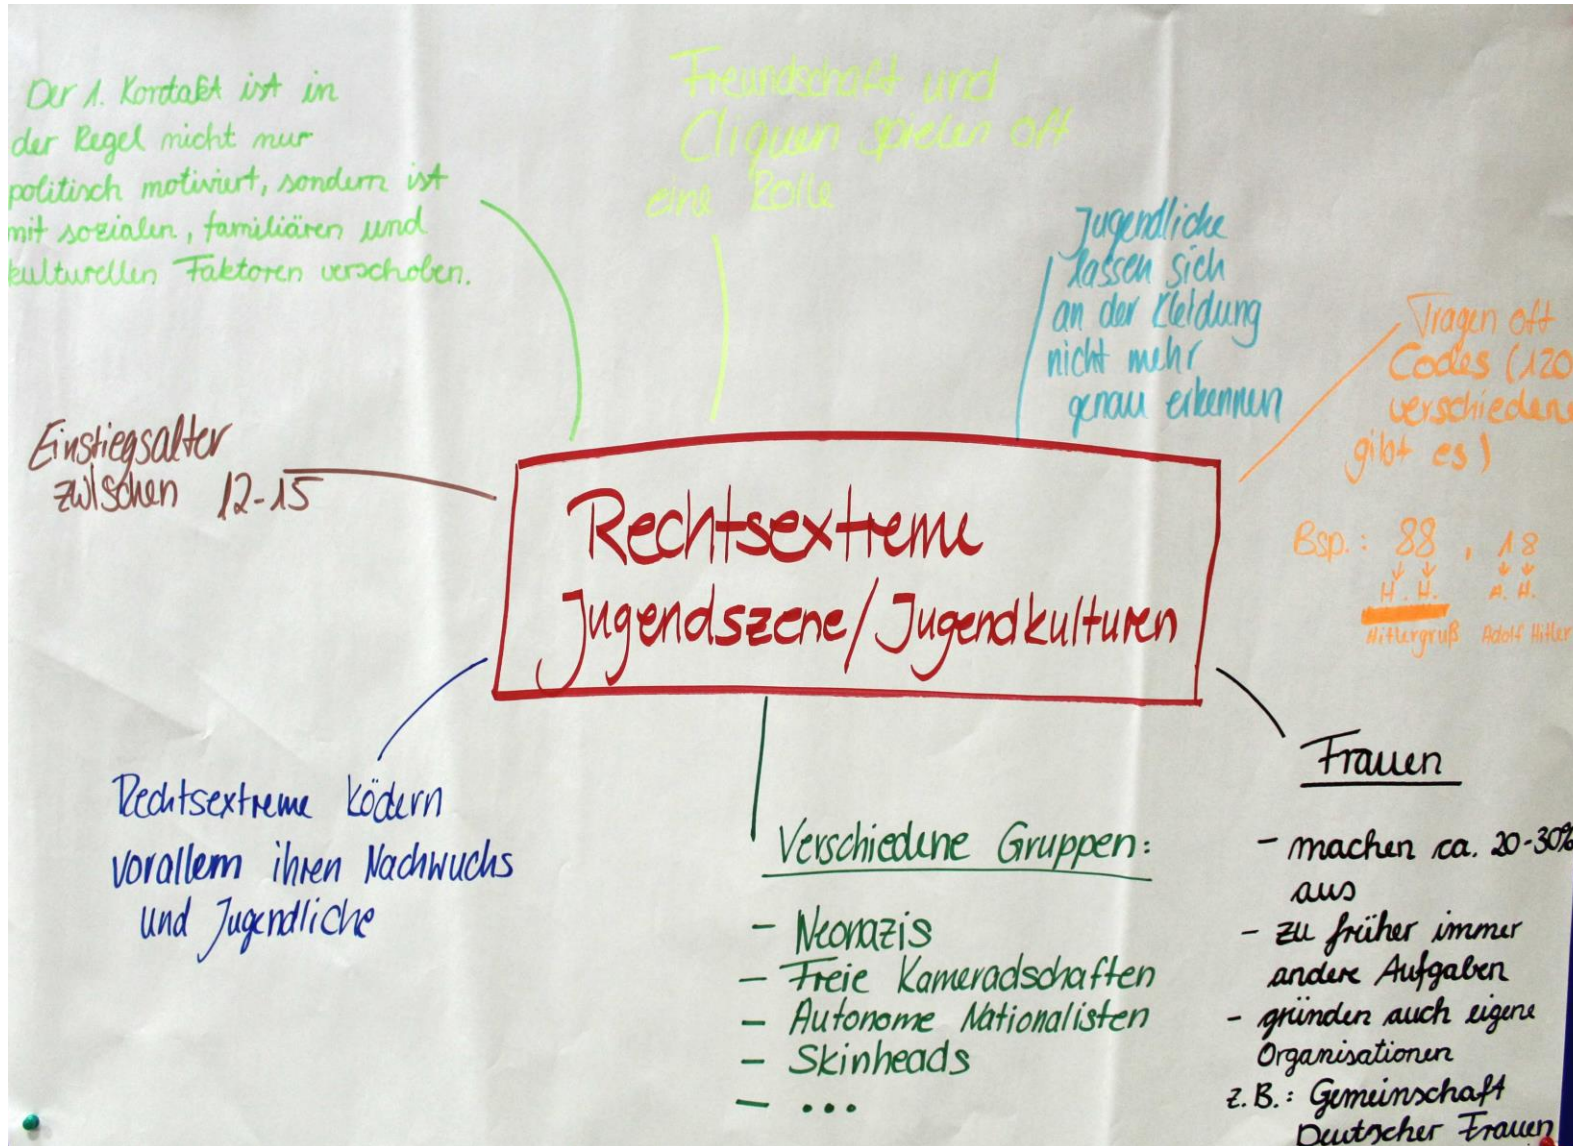 Der 1. Kontakt ist in
der Regel nicht nur
politisch motiviert, sondern ist
mit sozialen, familiären und
kulturellen Faktoren verschoben.
Freundschaft und
Cliquen spielen oft
eine Rolle
Jugendliche
lassen sich
an der Kleidung
nicht mehr
genau erkennen
Tragen oft
Codes (120
verschiedene
gibt es)
Bsp.: 88, 18
H. H. A. H.
Hitlergruß Adolf Hitler
Einstiegsalter
zwischen 12-15
Rechtsextreme
Jugendszene/Jugendkulturen
Rechtsextreme ködern
vorallem ihren Nachwuchs
und Jugendliche
Verschiedene Gruppen:
- Neonazis
- Freie Kameradschaften
- Autonome Nationalisten
- Skinheads
- ...
Frauen
- machen ca. 20-30%
aus
- zu früher immer
andere Aufgaben
- gründen auch eigene
Organisationen
z.B.: Gemeinschaft
Deutscher Frauen